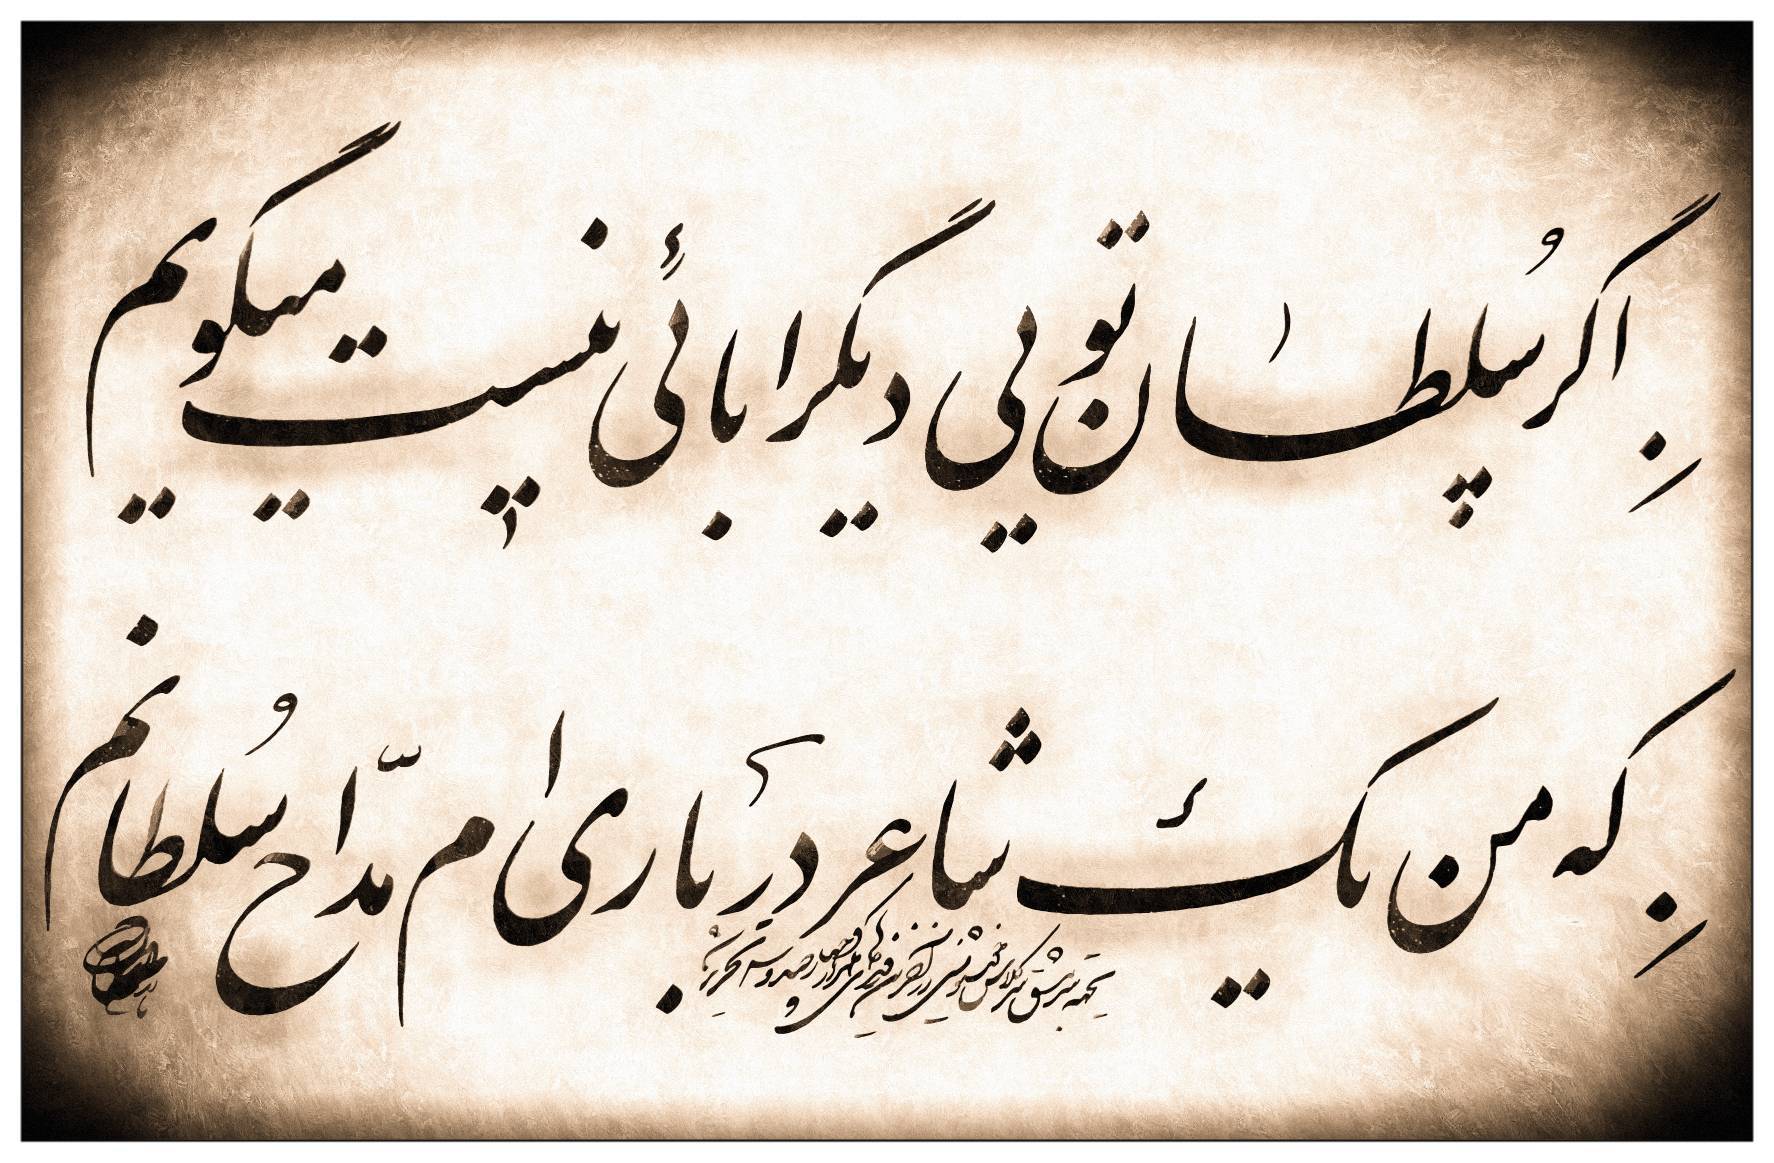 اگر سلطان تویی دیگر ابائی نیست میگویم
که من یک شاعر درباری ام مدّاح سلطانم